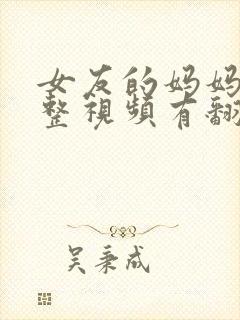 女友的妈妈
整視頻有翻
吴秉成